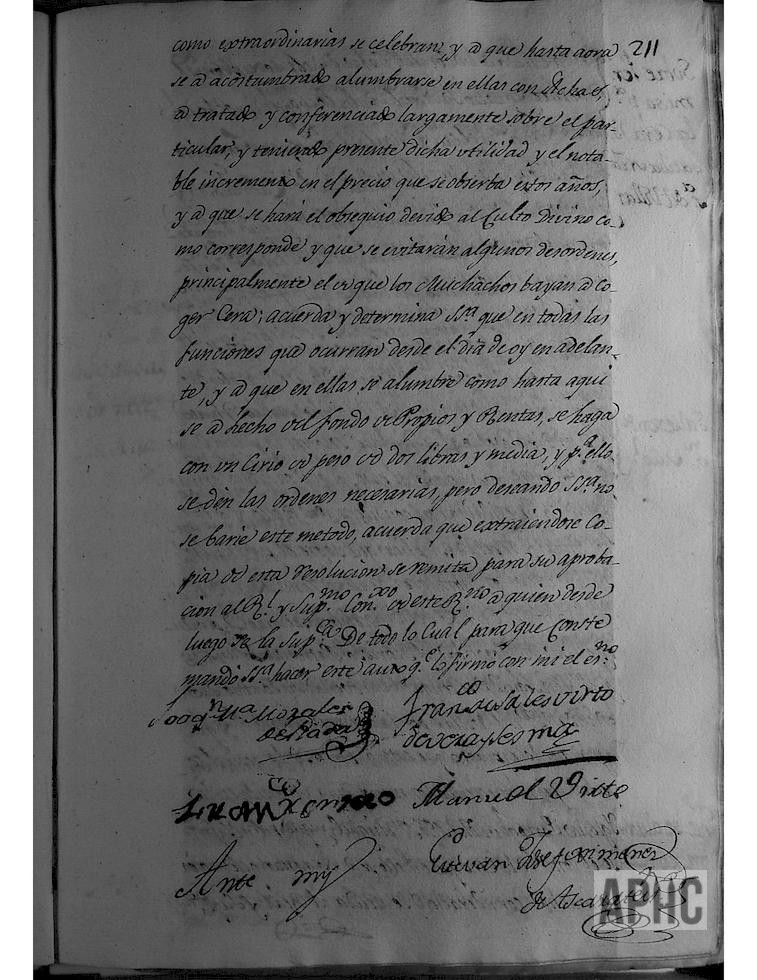 como extraordinarias se celebran, y a que hasta aora 211
se a acostumbrado alumbrarse en ellas con Achas,
a tratado y conferenciado largamente sobre el par-
ticular, y teniendo presente dicha utilidad y el nota-
ble incremento en el precio que se obserba estos años,
y a que se hará el obsequio devido al Culto Divino co-
mo corresponde y que se evitarán algunos desordenes,
principalmente el de que los Muchachos bayan a co-
ger Cera; acuerda y determina Ssª que en todas las
funciones que ocurran desde el dia de oy en adelan-
te, y a que en ellas se alumbre como hasta aqui
se a hecho del fondo de Propios y Rentas, se haga
con un Cirio de peso de dos libras y media, y pª ello
se den las ordenes necesarias, pero deseando Ssª no
se barie este metodo, acuerda que extraiendose Co-
pia de esta resolucion se remita para su aproba-
cion al Rl. y Supmo. Conxo. de este Rno. a quien desde
luego la Supca. De todo lo Cual para que Conste
mandó Ssª hacer este auto qe. lo firmó con mi el esno.
Joaqn. Ma. Morales
de Rada
Franco. de Sales Virto
de Vera y Lesma
Manuel Virto
Ante my
Estevan Josef Ximenez
de Ascarate
APHC